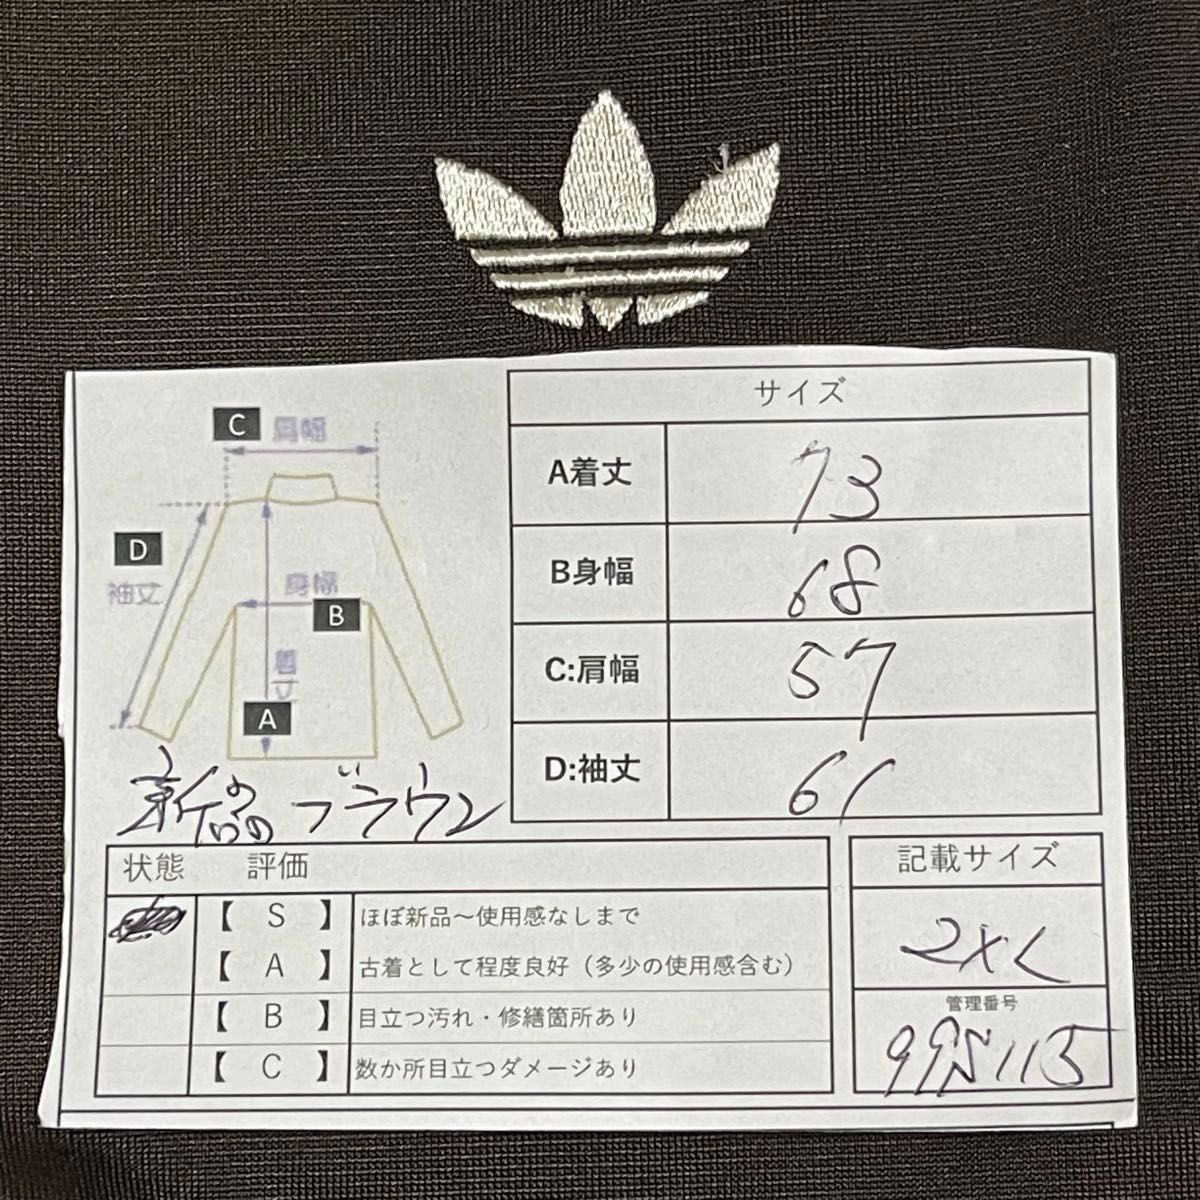 C 肩幅
D
袖丈
身幅
B
着丈
A
新品 ブラウン
サイズ
A着丈 73
B身幅 68
C:肩幅 57
D:袖丈 61
状態 評価
【 S 】 ほぼ新品〜使用感なしまで
【 A 】 古着として程度良好（多少の使用感含む）
【 B 】 目立つ汚れ・修繕箇所あり
【 C 】 数か所目立つダメージあり
記載サイズ
2XL
管理番号